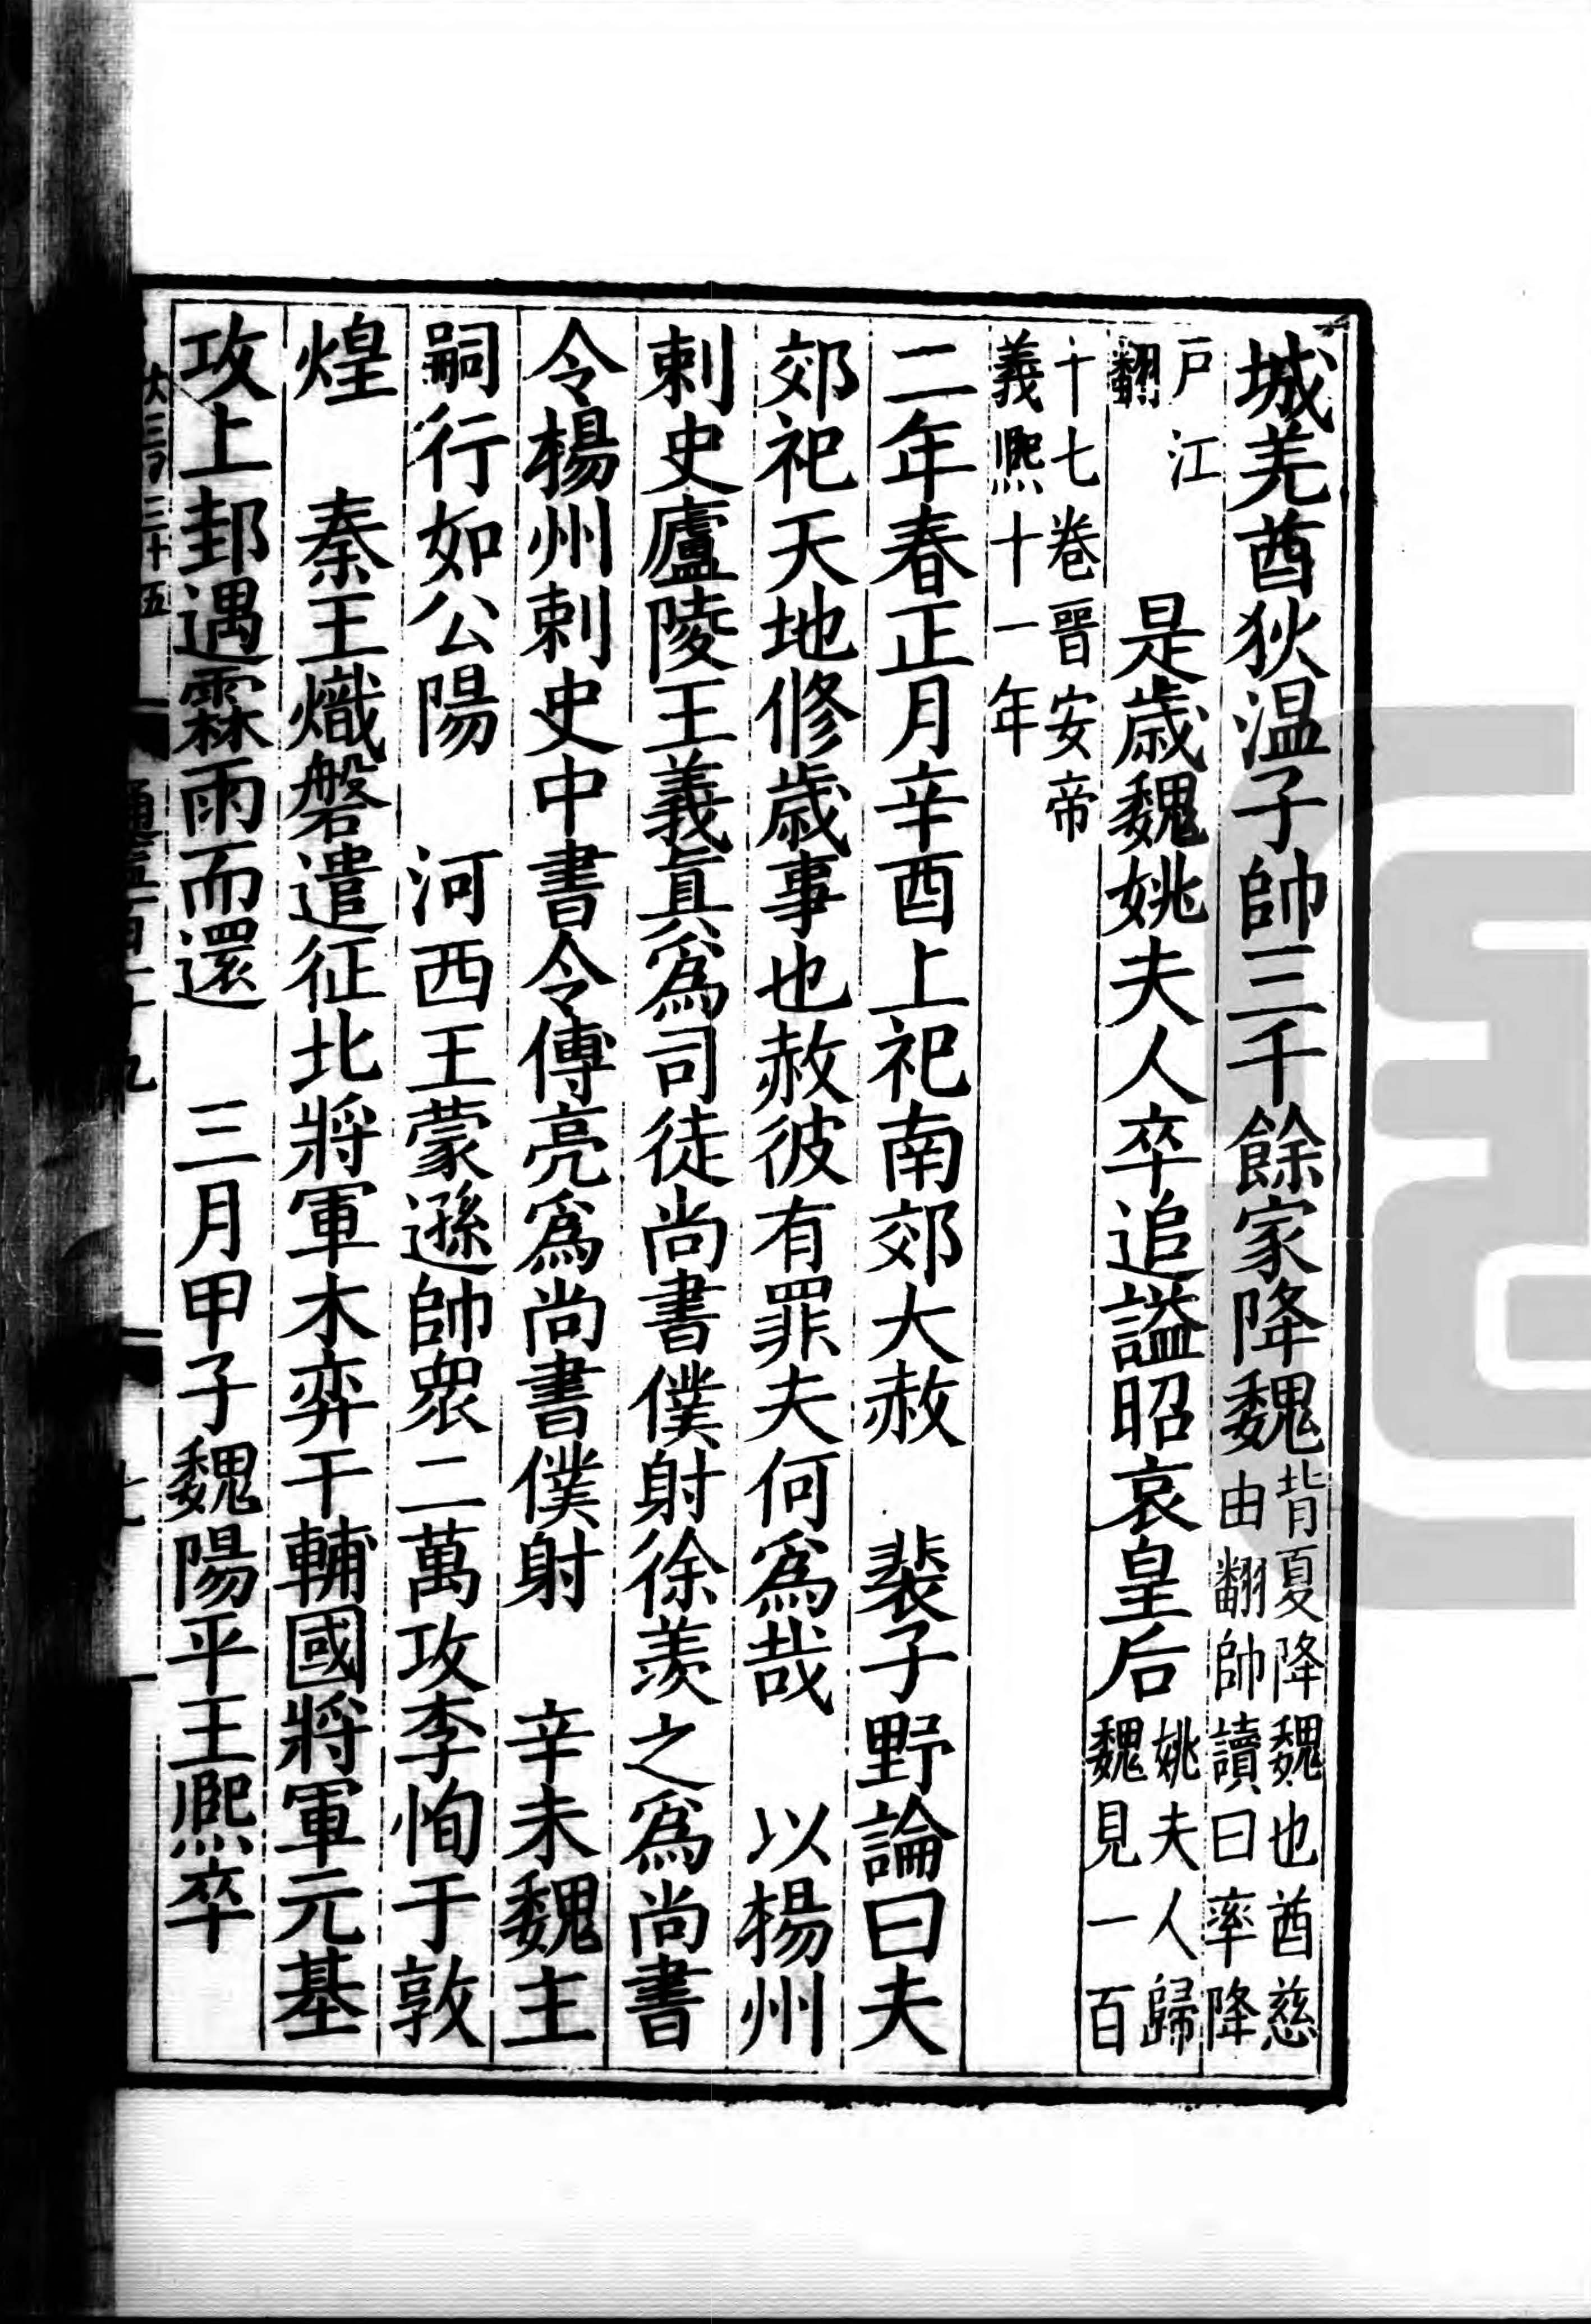 城羌酋狄温子帥三千餘家降魏背夏降魏也酋慈由翻帥讀曰率降
戸江翻　是歲魏姚夫人卒追謚昭哀皇后姚夫人歸魏見一百
十七卷晉安帝義熈十一年
二年春正月辛酉上祀南郊大赦　裴子野論曰夫
郊祀天地修歲事也赦彼有罪夫何爲哉　以楊州
刺史廬陵王義眞爲司徒尚書僕射徐羨之爲尚書
令楊州刺史中書令傅亮爲尚書僕射　辛未魏主
嗣行如公陽　河西王蒙遜帥衆二萬攻李恂于敦
煌　秦王熾磐遣征北將軍木弈干輔國將軍元基
攻上邽遇霖雨而還　三月甲子魏陽平王熈卒